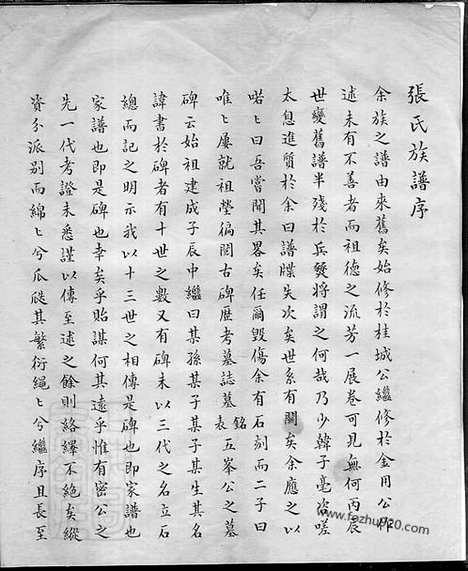 張氏族譜序
余族之譜由來舊矣始修於桂城公繼修於金用公作
述未有不善者而祖德之流芳一展卷可見無何丙辰
世變舊譜半殘於兵燹將謂之何哉乃少韓子毫盗嗟
太息進質於余曰譜牒失次矣世系有闕矣余應之以
喏〻曰吾嘗聞其畧矣任爾毀傷余有石刻而二子曰
唯〻屢就祖塋徧閱古碑歷考墓誌墓銘表五峯公之墓
碑云始祖建成子辰中繼曰某孫某子某子某生某名
諱書於碑者有十世之數又有碑未以三代之名立石
總而記之明示我以十三世之相傳是碑也即家譜也
家譜也即是碑也幸矣乎貽謀何其遠乎惟有密公之
先一代考證未悉謹以傳至述之餘則絡繹不絶矣縱
資分派別而綿〻兮瓜瓞其繁衍繩〻兮繼序且長至
www.fozhu920.com